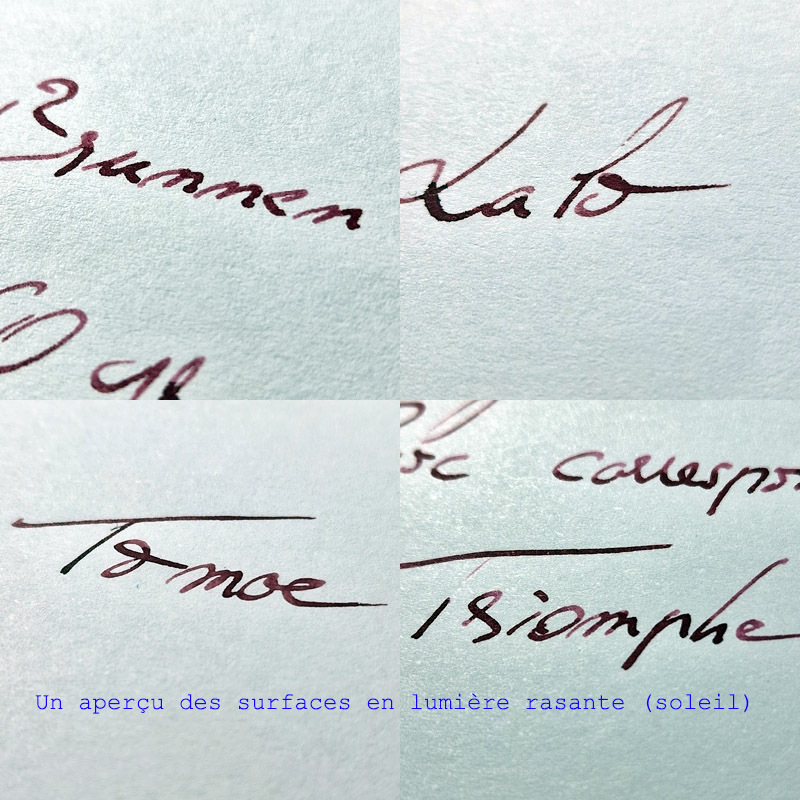 Brunnen
90 g
Lalo
Tomoe
oc correspon
Triomphe
Un aperçu des surfaces en lumière rasante (soleil)